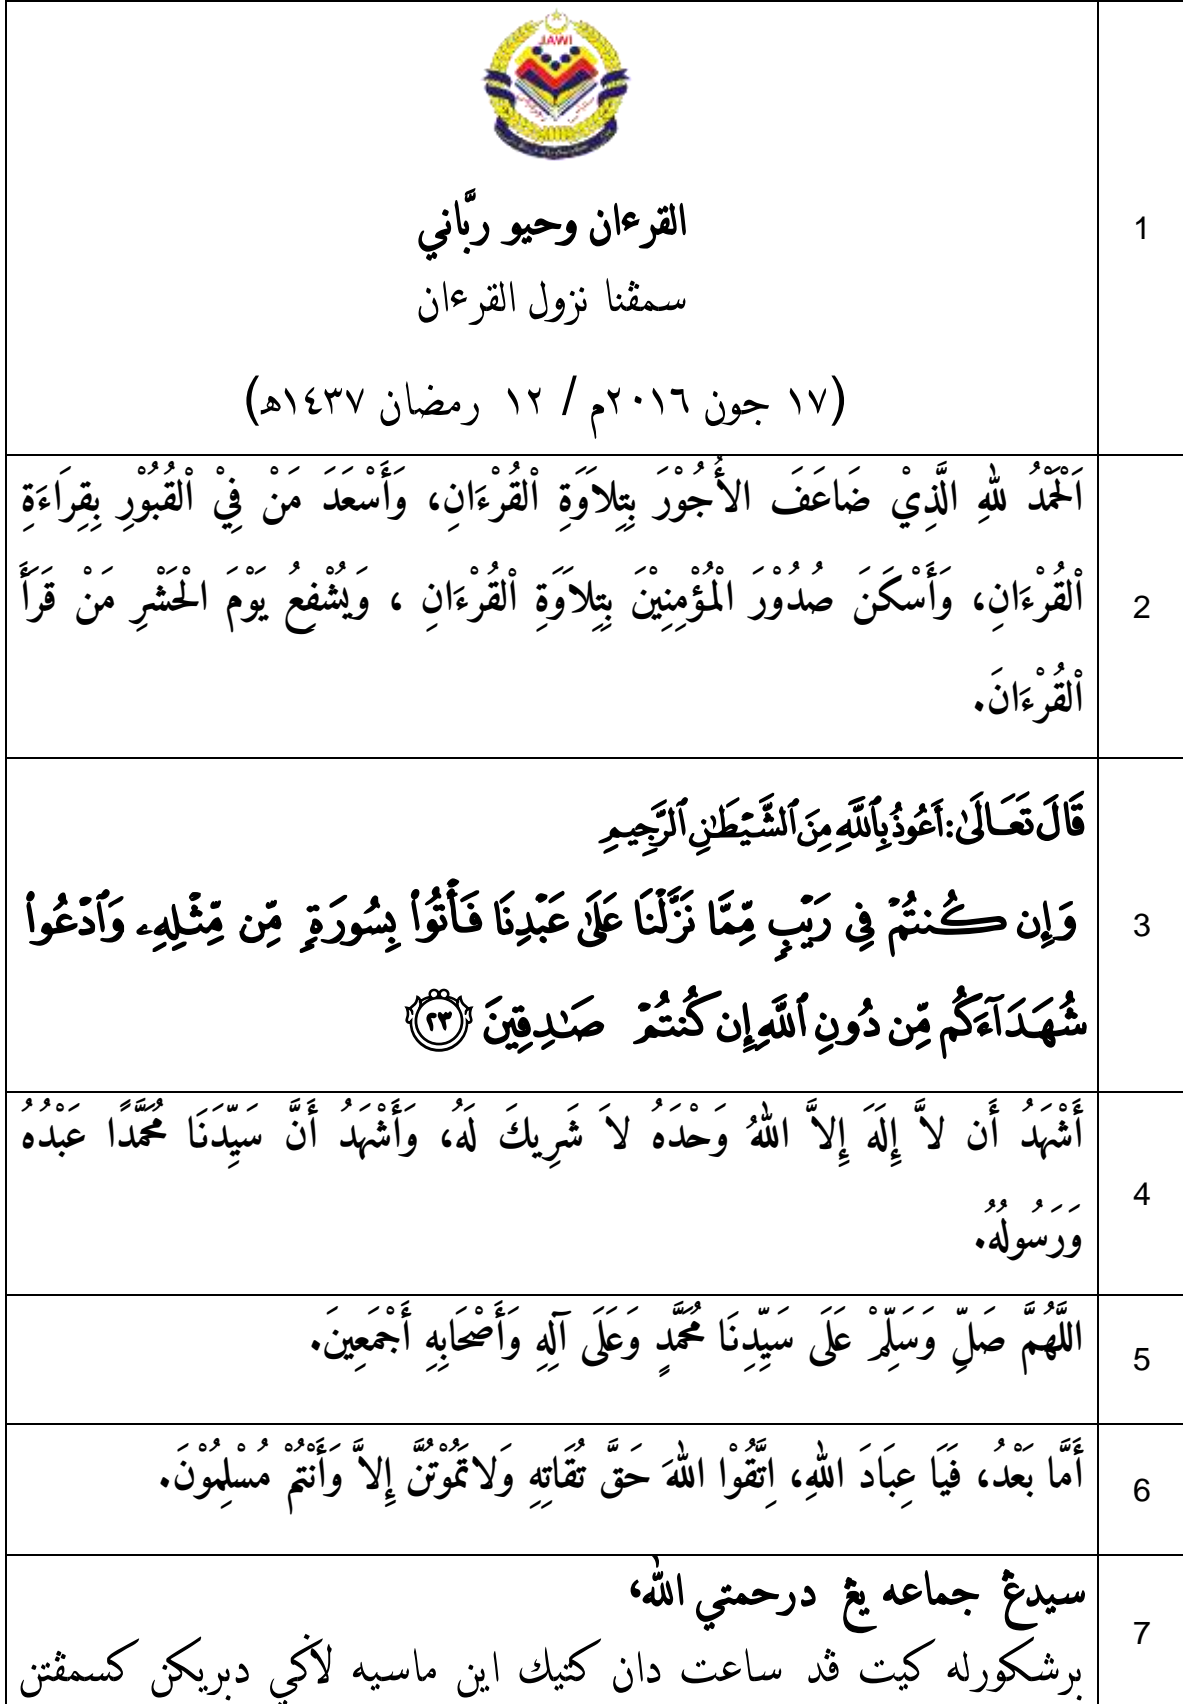 JAWI
القرءان وحيو ربّاني
سمڤنا نزول القرءان
(١٧ جون ٢٠١٦م / ١٢ رمضان ١٤٣٧هـ)
1
اَلْحَمْدُ للهِ الَّذِيْ ضَاعَفَ الأُجُوْرَ بِتِلاَوَةِ اْلقُرْءَانِ، وَأَسْعَدَ مَنْ فِيْ اْلقُبُوْرِ بِقِرَاءَةِ
اْلقُرْءَانِ، وَأَسْكَنَ صُدُوْرَ الْمُؤْمِنِيْنَ بِتِلاَوَةِ اْلقُرْءَانِ ، وَيُشْفِعُ يَوْمَ الْحَشْرِ مَنْ قَرَأَ
اْلقُرْءَانَ.
2
قَالَ تَعَالَىٰ: أَعُوذُ بِٱللَّهِ مِنَ ٱلشَّيْطَٰنِ ٱلرَّجِيمِ
وَإِن كُنتُمْ فِى رَيْبٍ مِّمَّا نَزَّلْنَا عَلَىٰ عَبْدِنَا فَأْتُوا۟ بِسُورَةٍ مِّن مِّثْلِهِۦ وَٱدْعُوا۟
شُهَدَآءَكُم مِّن دُونِ ٱللَّهِ إِن كُنتُمْ صَٰدِقِينَ ﴿٢٣﴾
3
أَشْهَدُ أَن لاَّ إِلَهَ إِلاَّ اللهُ وَحْدَهُ لاَ شَرِيكَ لَهُ، وَأَشْهَدُ أَنَّ سَيِّدَنَا مُحَمَّدًا عَبْدُهُ
وَرَسُولُهُ.
4
اللَّهُمَّ صَلِّ وَسَلِّمْ عَلَى سَيِّدِنَا مُحَمَّدٍ وَعَلَى آلِهِ وَأَصْحَابِهِ أَجْمَعِينَ.
5
أَمَّا بَعْدُ، فَيَا عِبَادَ اللهِ، اِتَّقُوْا اللهَ حَقَّ تُقَاتِهِ وَلاتَمُوْتُنَّ إِلاَّ وَأَنْتُمْ مُسْلِمُوْنَ.
6
سيدڠ جماعه يڠ درحمتي الله،
برشكورله كيت ڤد ساعت دان كتيك اين ماسيه لاݢي دبريكن كسمڤتن
7